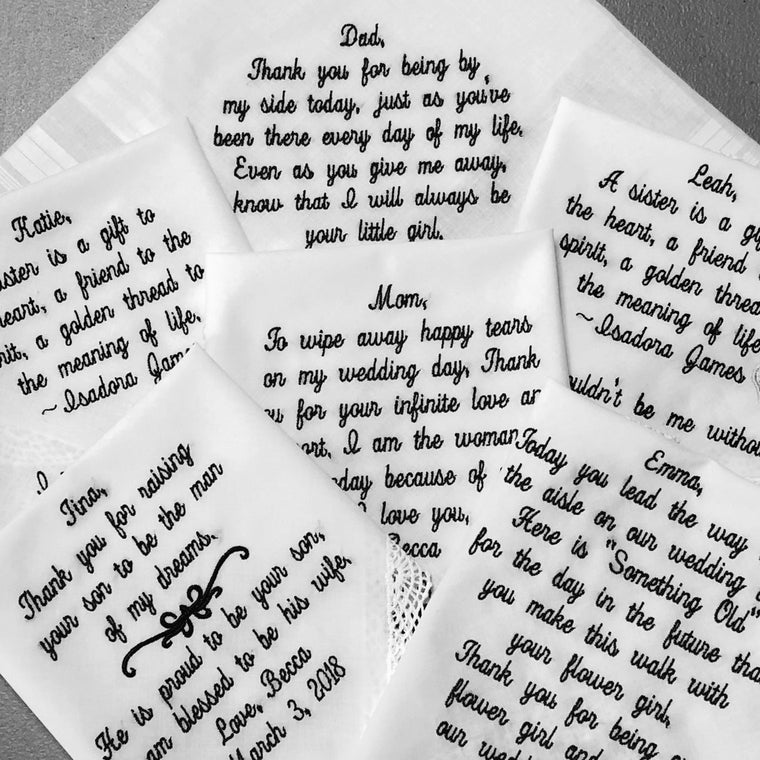 Dad,
Thank you for being by
my side today, just as you've
been there every day of my life.
Even as you give me away,
know that I will always be
your little girl.
Katie,
sister is a gift to
heart, a friend to the
spirit, a golden thread to
the meaning of life.
~Isadora James
Leah,
A sister is a gift
the heart, a friend
spirit, a golden thread
the meaning of life
~Isadora James
couldn't be me without
Mom,
To wipe away happy tears
on my wedding day, Thank
you for your infinite love and
I am the woman
today because of
I love you,
Becca
Tina,
Thank you for raising
your son to be the man
of my dreams.
He is proud to be your son,
am blessed to be his wife.
Love, Becca
March 3, 2018
Emma,
Today you lead the way
the aisle on our wedding
Here is "Something Old"
for the day in the future that
you make this walk with
your flower girl.
Thank you for being
flower girl and
our wedding